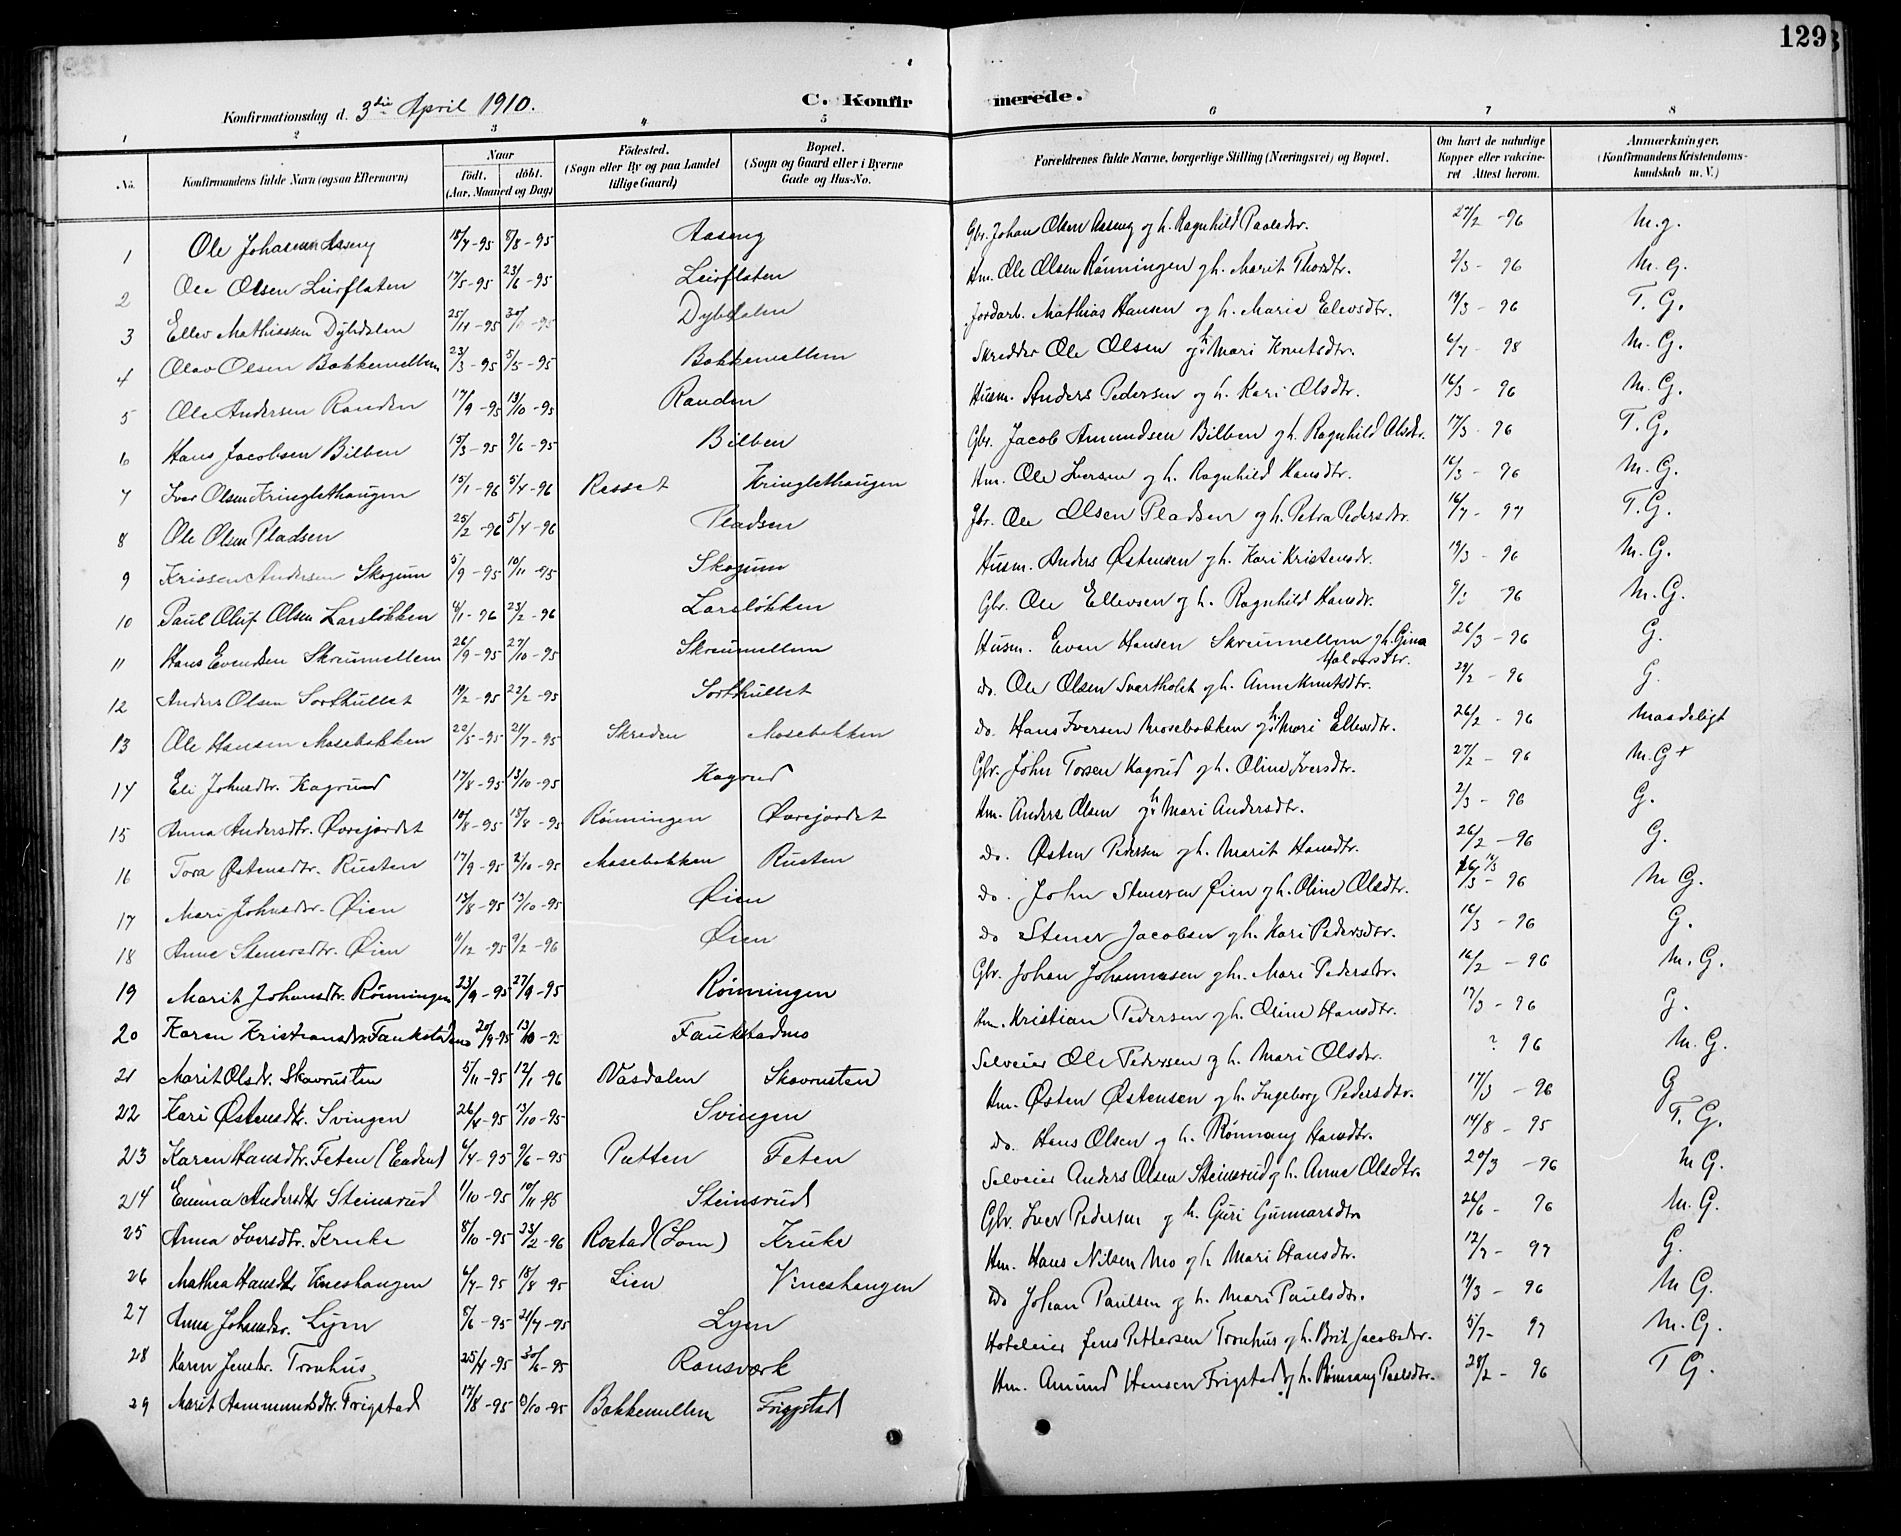 129
Konfirmationsdag d. 3die April 1910.
C. Konfirmerede.
1 2 3 4 5 6 7 8
No. Konfirmandens fulde Navn (ogsaa Efternavn) Naar födt. döbt. (Aar, Maaned og Dag) Födested. (Sogn eller By og paa Landet tillige Gaard) Bopæl. (Sogn og Gaard eller i Byerne Gade og Hus-No. Forældrenes fulde Navne, borgerlige Stilling (Næringsvei) og Bopæl. Om havt de naturlige Kopper eller vaccineret Attest herom. Anmærkninger. (Konfirmandens Kristendomskundskab m. V.)
1 Ole Johansen Aaseng 18/4-95 5/8-95 Aaseng Gbr. Johan Olsen Aaseng og h. Ragnhild Paalsdtr. 27/2-96 M.g.
2 Ole Olsen Leirflaten 17/5-95 23/6-95 Leirflaten Hm. Ole Olsen Rönningen og h. Marit Thorsdtr. 2/3-96 M.G.
3 Ellev Mathissen Dybdalen 25/11-95 Dybdalen Jordarb. Mathias Hansen og h. Marie Elevsdtr. 19/3-96 T.G.
4 Olav Olsen Bakkemellem 23/3-95 5/5-95 Bakkemellem Skredder Ole Olsen og h. Mari Knutsdtr. 6/7-98 M.G.
5 Ole Andersen Randen 17/9-95 13/10-95 Randen Husm. Anders Pedersen og h. Kari Olsdtr. 16/3-96 M.G.
6 Hans Jacobsen Bilben 15/3-95 9/6-95 Bilben Gbr. Jacob Amundsen Bilben og h. Ragnhild Olsdtr. 17/3-96 T.G.
7 Iver Olsen Kringlethaugen 15/1-96 5/4-96 Resset Kringlethaugen Hm. Ole Iversen og h. Ragnhild Hansdtr. 16/3-96 M.G.
8 Ole Olsen Pladsen 25/2-96 5/4-96 Pladsen Gbr. Ole Olsen Pladsen og h. Petra Pedersdtr. 16/7-97 T.G.
9 Krissen Andersen Skogum 5/9-95 10/11-95 Skogum Husm. Anders Østensen og h. Kari Kristensdtr. 19/3-96 M.G.
10 Paul Oluf Olsen Larsløkken 6/1-96 23/2-96 Larsløkken Gbr. Ole Ellevsen og h. Ragnhild Hansdtr. 9/3-96 M.G.
11 Hans Evendsen Skreumellem 26/9-95 27/10-95 Skreumellem Husm. Even Hansen Skreumellem og h. Gina Halvorsdtr. 26/3-96 G.
12 Anders Olsen Sorthullet 19/2-95 22/2-95 Sorthullet do. Ole Olsen Svartholet og h. Anne Knutsdtr. 29/2-96 G.
13 Ole Hansen Mosebakken 22/5-95 21/7-95 Skreden Mosebakken do. Hans Iversen Mosebakken og h. Mari Ellevsdtr. 26/2-96 Maadeligt
14 Eli Johnsdtr. Kagrud 17/8-95 13/10-95 Kagrud Gbr. John Torsen Kagrud og h. Oline Iversdtr. 27/2-96 M.G+
15 Anna Andersdtr. Øvrejordet 10/8-95 18/8-95 Rönningen Øvrejordet Hm. Anders Olsen og h. Mari Andersdtr. 2/3-96 G.
16 Tora Østensdtr. Rusten 17/9-95 2/10-95 Mosebakken Rusten do. Østen Pedersen og h. Marit Hansdtr. 26/2-96 G.
17 Mari Johnsdtr. Øien 12/8-95 13/10-95 Øien do. John Stenersen Øien og h. Oline Olsdtr. 16/3-96 M G.
18 Anne Stenersdtr. Øien 11/12-95 9/2-96 Øien do Stener Jacobsen og h. Kari Pedersdtr. 16/3-96 G.
19 Marit Johansdtr. Rönningen 23/9-95 27/9-95 Rönningen Gbr. Johan Johannesen og h. Mari Pedersdtr. 16/2-96 M.G.
20 Karen Kristiansdtr. Faukstadmo 20/9-95 13/10-95 Faukstadmo Hm. Kristian Pedersen og h. Oline Hansdtr. 17/3-96 G.
21 Marit Olsdtr. Skavrusten 5/11-95 12/1-96 Vasdalen Skavrusten Selveier Ole Pedersen og h. Mari Olsdtr. ? 96 M.G.
22 Kari Østensdtr. Svingen 26/4-95 13/10-95 Svingen Hm. Østen Østensen og h. Ingeborg Pedersdtr. 17/3-96 G
23 Karen Hansdtr. Feten (Enden) 6/4-95 9/6-95 Putten Feten do. Hans Olsen og h. Rönnaug Hansdtr. 14/8-95 T.G.
24 Emma Andersdtr Steinsrud 1/10-95 10/11-95 Steinsrud Selveier Anders Olsen Steinsrud og h. Anne Olsdtr. 20/3-96 M G.
25 Anna Iversdtr. Kruke 8/10-95 23/2-96 Rostad (Lom) Kruke Gbr. Iver Pedersen og h. Guri Gunnarsdtr 26/6-96 M.G.
26 Mathea Hansdtr Vineshaugen 6/7-95 18/8-95 Lien Vineshaugen Hm. Hans Nilsen Mo og h. Mari Hansdtr. 12/7-97 G.
27 Anna Johansdtr. Lyen 8/6-95 21/7-95 Lyen do Johan Paulsen og h. Mari Paulsdtr. 19/3-96 M G.
28 Karen Jensdtr. Tronhus 25/4-95 30/6-95 Ransværk Hoteleier Jens Pettersen Tronhus og h. Brit Jacobsdtr. 5/7-97 M.G.
29 Marit Aammundsdtr. Frigstad 17/8-95 Bakkemellem Friggstad Hm. Amund Hansen Frigstad og h. Rönnaug Paalsdtr. 28/2-96 T G.